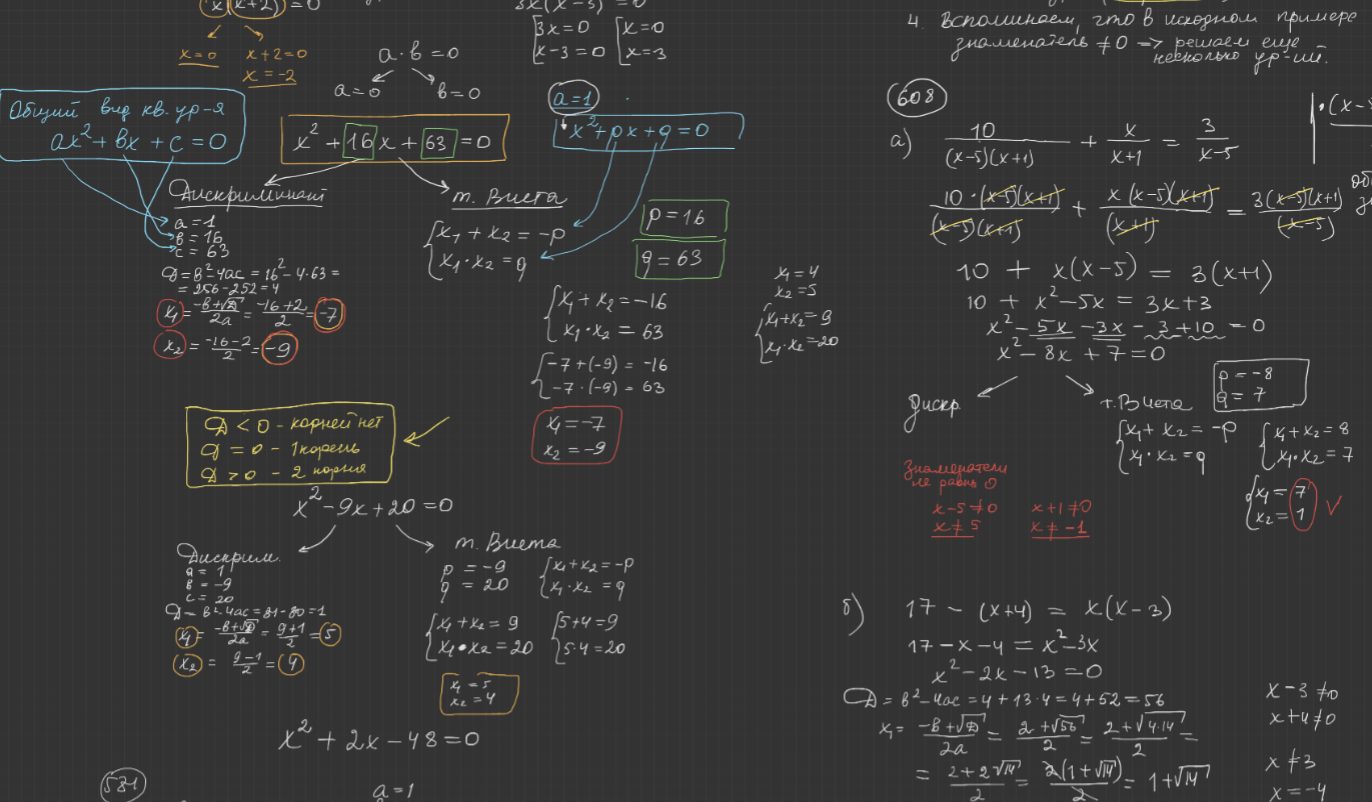 x(x+2)=0
x=0
x+2=0
x=-2
a·b=0
a=0
b=0
3x(x-3)=0
3x=0
x-3=0
x=0
x=3
Общий вид кв. ур-я
ax²+bx+c=0
x²+16x+63=0
a=1
x²+px+q=0
Дискриминант
a=1
b=16
c=63
D=b²-4ac=16²-4·63=
=256-252=4
x₁=(-b+√D)/2a=(-16+2)/2=-7
x₂=(-16-2)/2=-9
т. Виета
x₁+x₂=-p
x₁·x₂=q
p=16
q=63
x₁+x₂=-16
x₁·x₂=63
-7+(-9)=-16
-7·(-9)=63
x₁=-7
x₂=-9
x₁=4
x₂=5
x₁+x₂=9
x₁·x₂=20
D<0 - корней нет
D=0 - 1 корень
D>0 - 2 корня
x²-9x+20=0
Дискрим.
a=1
b=-9
c=20
D=b²-4ac=81-80=1
x₁=(-b+√D)/2a=(9+1)/2=5
x₂=(9-1)/2=4
т. Виета
p=-9
q=20
x₁+x₂=-p
x₁·x₂=q
x₁+x₂=9
x₁·x₂=20
5+4=9
5·4=20
x₁=5
x₂=4
x²+2x-48=0
531
a=1
4. Вспоминаем, что в исходном примере
знаменатель ≠0 => решаем еще
несколько ур-ий.
608
а) 10/((x-5)(x+1)) + x/(x+1) = 3/(x-5)
10·(x-5)(x+1)/((x-5)(x+1)) + x(x-5)(x+1)/(x+1) = 3(x-5)(x+1)/(x-5)
10+x(x-5)=3(x+1)
10+x²-5x=3x+3
x²-5x-3x-3+10=0
x²-8x+7=0
Дискр.
т. Виета
p=-8
q=7
x₁+x₂=-p
x₁·x₂=q
x₁+x₂=8
x₁·x₂=7
x₁=7
x₂=1
Знаменатели
не равны 0
x-5≠0
x≠5
x+1≠0
x≠-1
б) 17-(x+4)=x(x-3)
17-x-4=x²-3x
x²-2x-13=0
D=b²-4ac=4+13·4=4+52=56
x₁=(-b+√D)/2a=(2+√56)/2=(2+√4·14)/2=
=(2+2√14)/2=2(1+√14)/2=1+√14
x-3≠0
x+4≠0
x≠3
x=-4